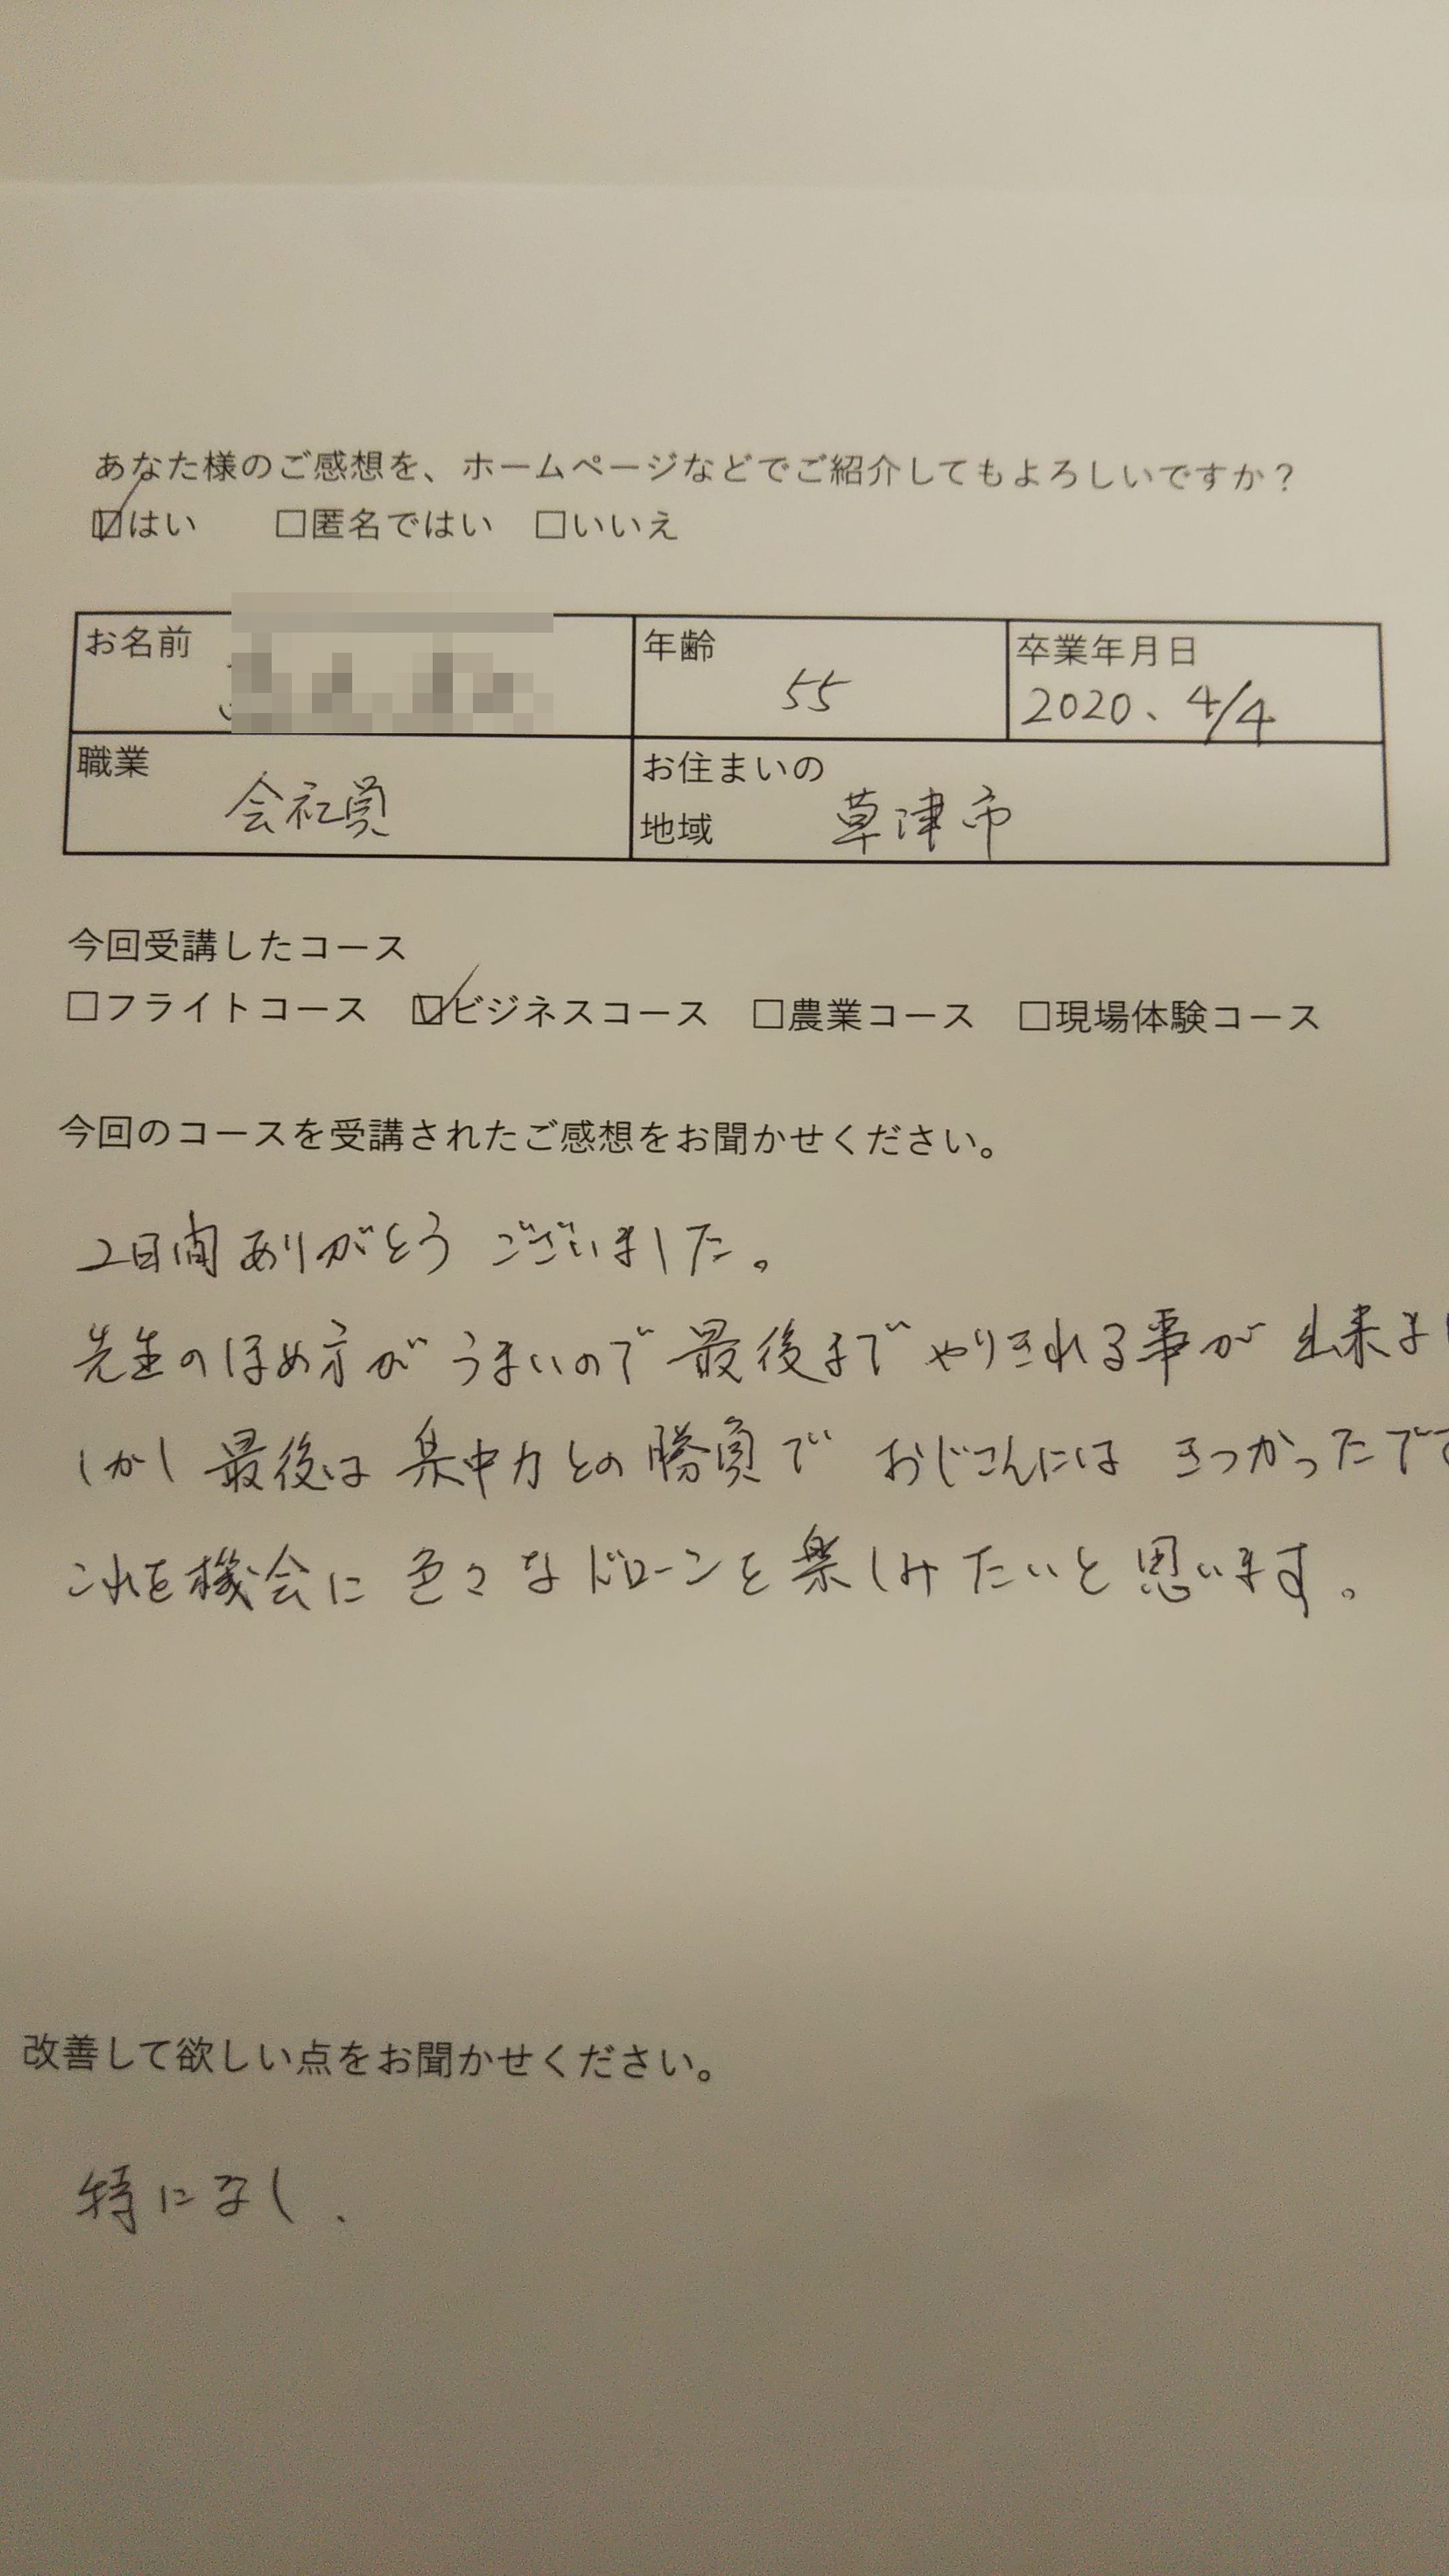 あなた様のご感想を、ホームページなどでご紹介してもよろしいですか？
☑はい　□匿名ではい　□いいえ
お名前
年齢
55
卒業年月日
2020、4/4
職業
会社員
お住まいの
地域
草津市
今回受講したコース
□フライトコース　☑ビジネスコース　□農業コース　□現場体験コース
今回のコースを受講されたご感想をお聞かせください。
2日間ありがとうございました。
先生のほめ方がうまいので最後までやりきれる事が出来ま
しかし最後は集中力との勝負でおじさんにはきつかったで
これを機会に色々なドローンを楽しみたいと思います。
改善して欲しい点をお聞かせください。
特になし、